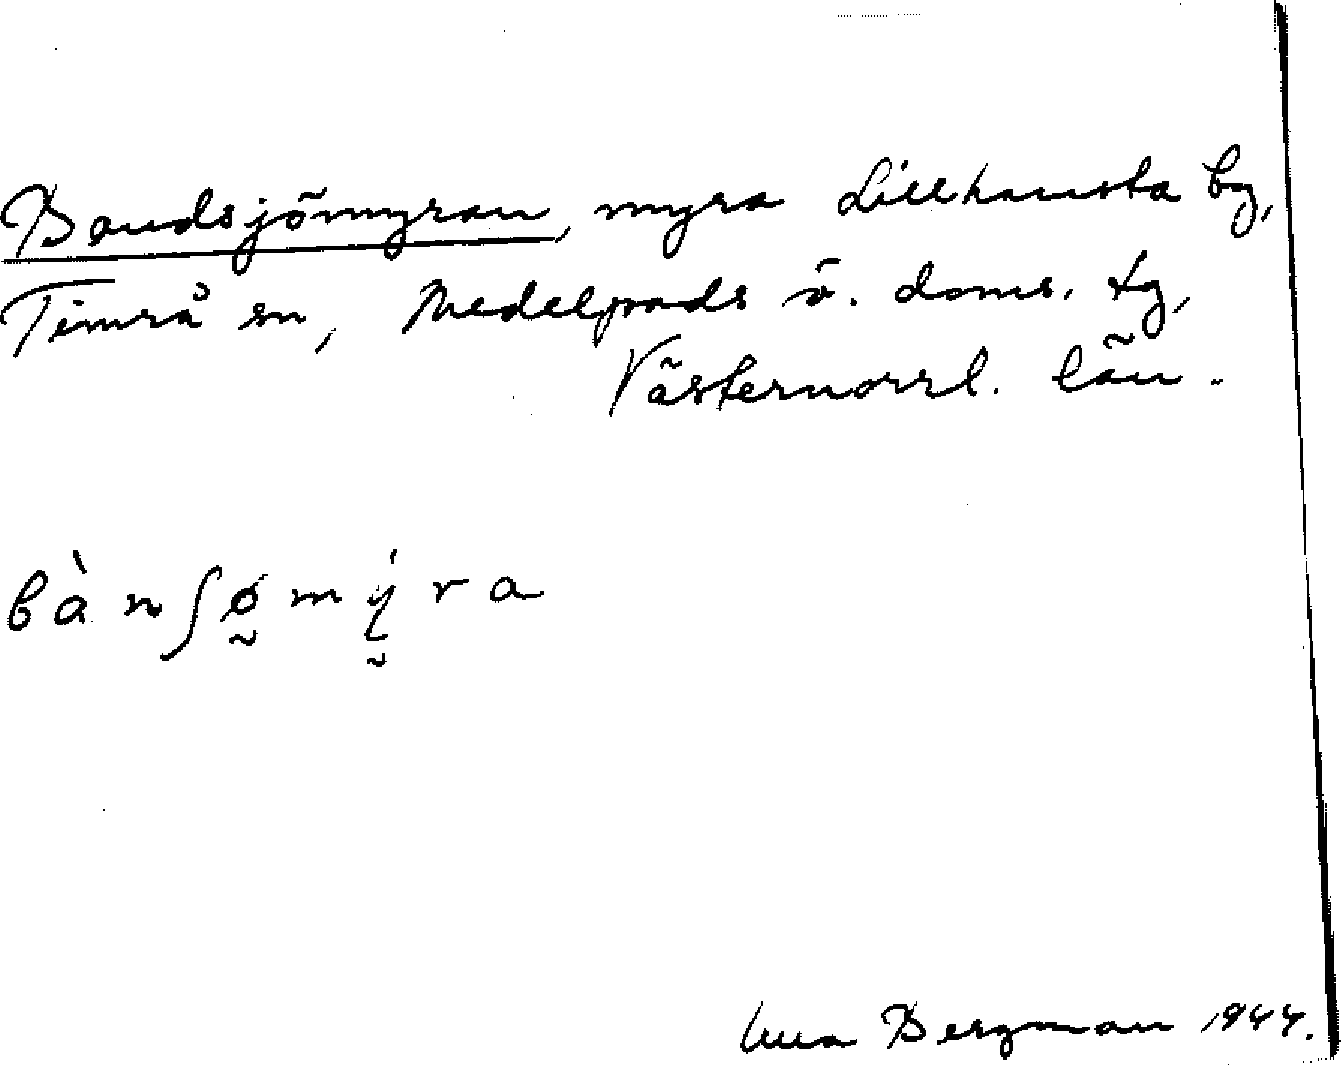 Bandsjömyran, myra Lillhamsta by,
Timrå sn, Medelpads ö. doms. tg,
Västernorrl. län.
bànʃø̰mý̰ra
Bergman 1944.